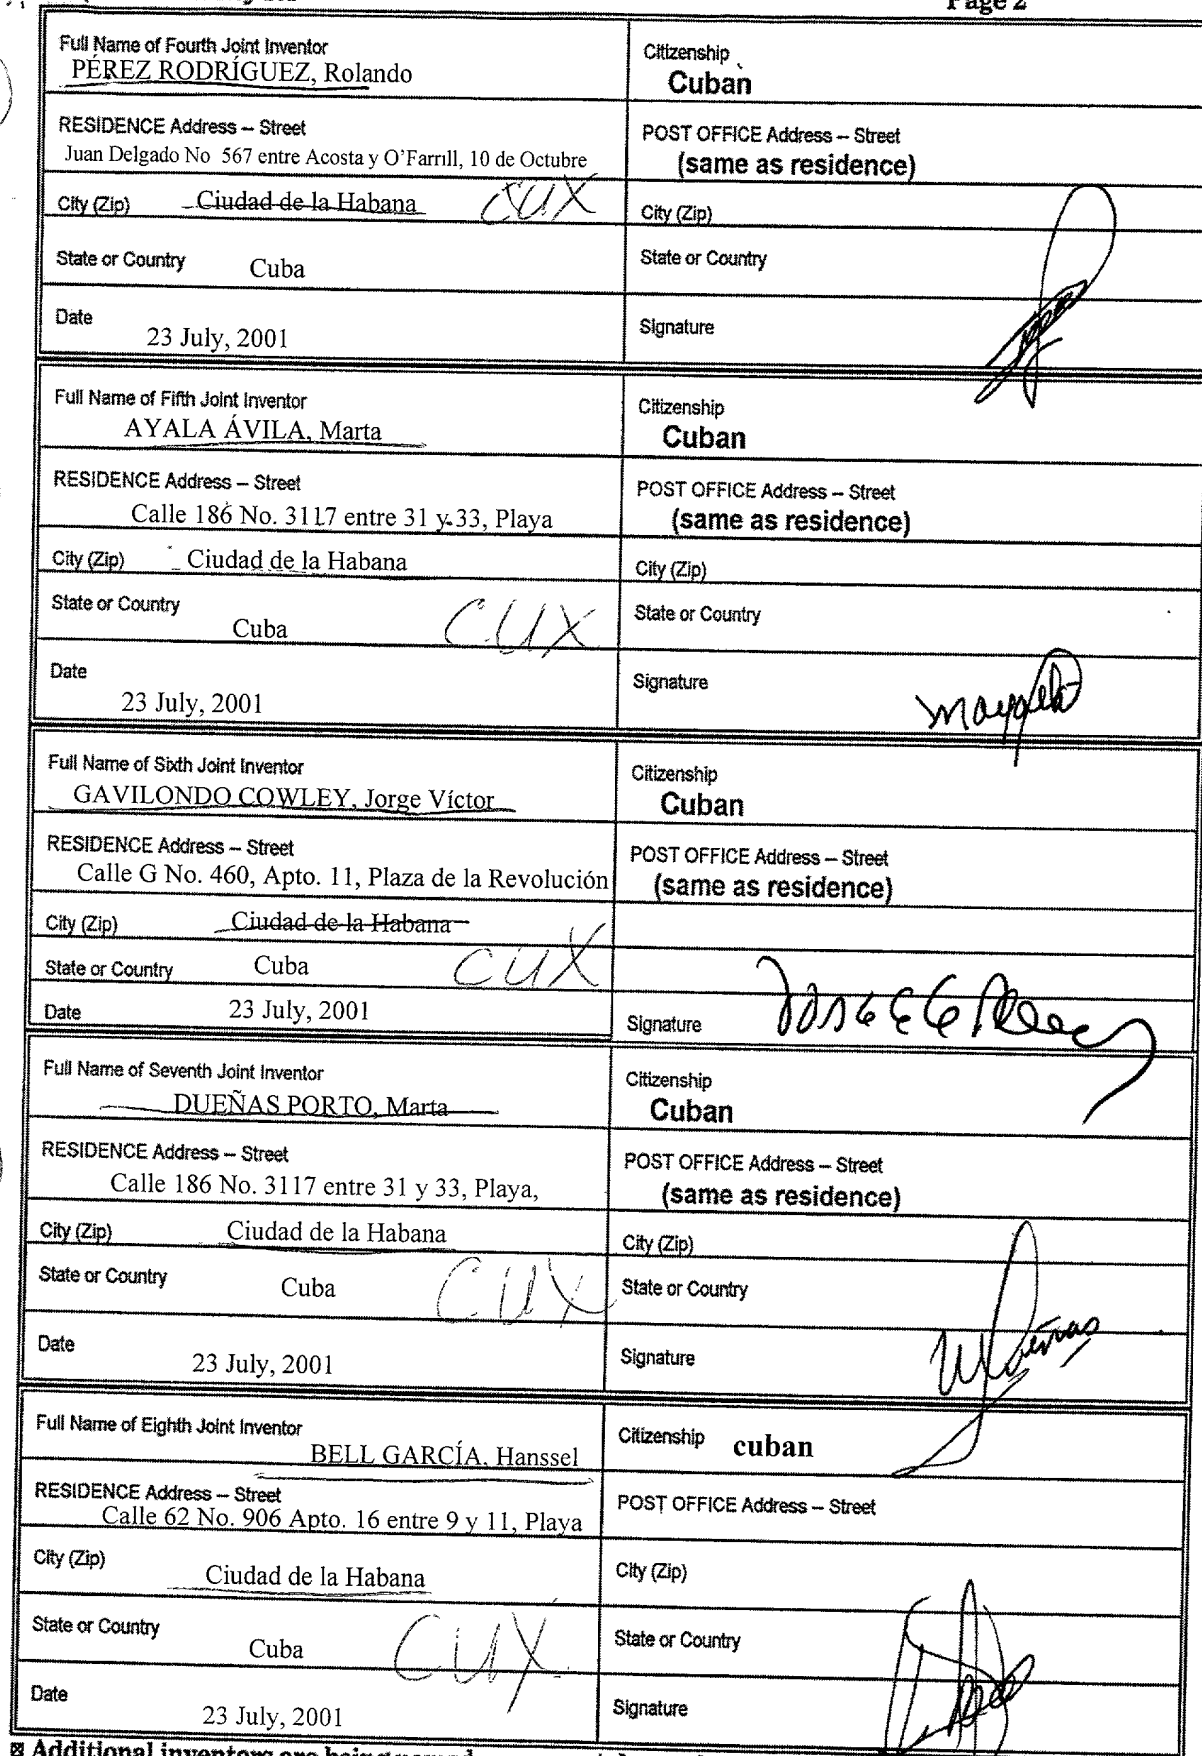 Page 2
Full Name of Fourth Joint Inventor
PÉREZ RODRÍGUEZ, Rolando
Citizenship
Cuban
RESIDENCE Address – Street
Juan Delgado No 567 entre Acosta y O'Farrill, 10 de Octubre
POST OFFICE Address – Street
(same as residence)
City (Zip) Ciudad de la Habana CUX
City (Zip)
State or Country Cuba
State or Country
Date
23 July, 2001
Signature
Full Name of Fifth Joint Inventor
AYALA ÁVILA, Marta
Citizenship
Cuban
RESIDENCE Address – Street
Calle 186 No. 3117 entre 31 y 33, Playa
POST OFFICE Address – Street
(same as residence)
City (Zip) Ciudad de la Habana
City (Zip)
State or Country
Cuba CUX
State or Country
Date
23 July, 2001
Signature
Full Name of Sixth Joint Inventor
GAVILONDO COWLEY, Jorge Víctor
Citizenship
Cuban
RESIDENCE Address – Street
Calle G No. 460, Apto. 11, Plaza de la Revolución
POST OFFICE Address – Street
(same as residence)
City (Zip) Ciudad de la Habana
State or Country Cuba CUX
Date 23 July, 2001
Signature
Full Name of Seventh Joint Inventor
DUEÑAS PORTO, Marta
Citizenship
Cuban
RESIDENCE Address – Street
Calle 186 No. 3117 entre 31 y 33, Playa,
POST OFFICE Address – Street
(same as residence)
City (Zip) Ciudad de la Habana
City (Zip)
State or Country Cuba CUX
State or Country
Date
23 July, 2001
Signature
Full Name of Eighth Joint Inventor
BELL GARCÍA, Hanssel
Citizenship cuban
RESIDENCE Address – Street
Calle 62 No. 906 Apto. 16 entre 9 y 11, Playa
POST OFFICE Address – Street
City (Zip)
Ciudad de la Habana
City (Zip)
State or Country
Cuba CUX
State or Country
Date
23 July, 2001
Signature
Additional inventors are being named